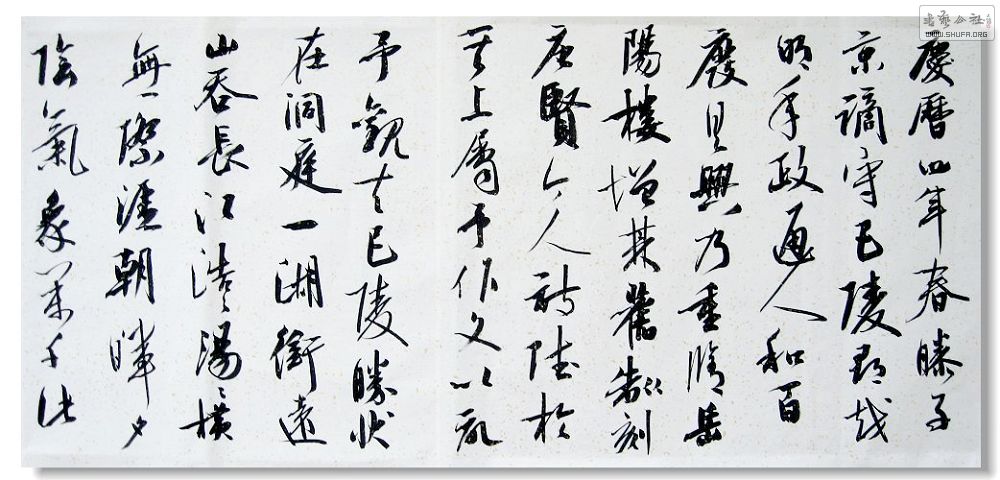 慶曆四年春滕子
京謫守巴陵郡越
明年政通人和百
廢具興乃重脩岳
陽樓增其舊制刻
唐賢今人詩賦於
其上屬予作文以記
予觀夫巴陵勝狀
在洞庭一湖銜遠
山吞長江浩〻湯〻橫
無際涯朝暉夕
陰氣象萬千此
書藝公社
WWW.SHUFA.ORG